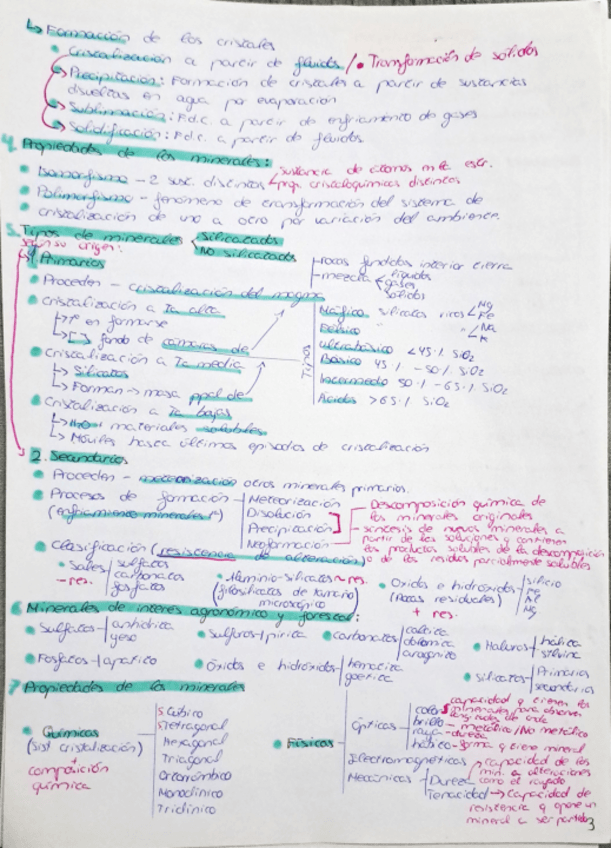 ↳ Formación de los cristales
• Cristalización a partir de fluidos / • Transformación de sólidos
→ Precipitación: Formación de cristales a partir de sustancias
disueltas en agua por evaporación
→ Sublimación: F.d.c. a partir de enfriamiento de gases
→ Solidificación: F.d.c. a partir de fluidos.
4. Propiedades de los minerales:
sustancia de átomos m et. estr.
• Isomorfismo - 2 sust. distintas prop. cristaloquímicas distintas
• Polimorfismo - fenómeno de transformación del sistema de
• cristalización de uno a otro por variación del ambiente.
5. Tipos de minerales silicatados
según su origen: No silicatados
1. Primarios
rocas fundidas interior tierra
• Proceden - cristalización del magma mezcla líquidos
gases
sólidos
• Cristalización a Ta alta
↳ 1º en formarse
↳ fondo de cámaras de
• Cristalización a Ta media
↳ Silicatos
↳ Forman → masa ppal de
• Cristalización a Ta bajas
↳ materiales solubles
↳ Móviles hasta últimos episodios de cristalización
Tipos
Máfico silicatos ricos Mg
Fe
Félsico " Na
K
Ultrabásico <45% SiO2
Básico 45% - 50% SiO2
Intermedio 50% - 65% SiO2
Ácidos >65% SiO2
2. Secundarios
• Proceden - meteorización otros minerales primarios.
• Procesos de formación Meteorización
(enfriamiento minerales 1º) Disolución
Precipitación
Neoformación
Descomposición química de
los minerales originales
síntesis de nuevos minerales a
partir de las soluciones q contienen
los productos solubles de la descomposición
o de los residuos parcialmente solubles
• Clasificación (resistencia de alteración)
• Sales sulfatos
carbonatos
fosfatos
- res.
• Aluminio-silicatos ~ res.
(filosilicatos de tamaño
microscópico)
• Oxidos e hidróxidos silicio
(Rocas residuales) Fe
Al
Mg
+ res.
6. Minerales de interés agronómico y forestal:
• Sulfatos anhidrita
yeso
• Sulfuros pirita
• carbonatos calcita
dolomita
aragonito
• Haluros halita
silvina
• Fosfatos apatito
• Óxidos e hidróxidos hematita
goetita
• silicatos Primarios
secundarios
7. Propiedades de los minerales
• Químicas
(Sist. cristalización)
+
composición
química
Cúbico
Tetragonal
Hexagonal
Triagonal
Ortorrómbico
Monoclínico
Triclínico
• Físicas
Ópticas
color capacidad q tienen los
minerales para absorber
longitudes de onda
brillo - metálico / No metálico
raya - dureza
hábito - forma q tiene mineral
Electromagnéticas
Mecánicas Dureza capacidad de los
min. a alteraciones
como el rayado
Tenacidad → Capacidad de
resistencia q opone un
mineral a ser partido
3